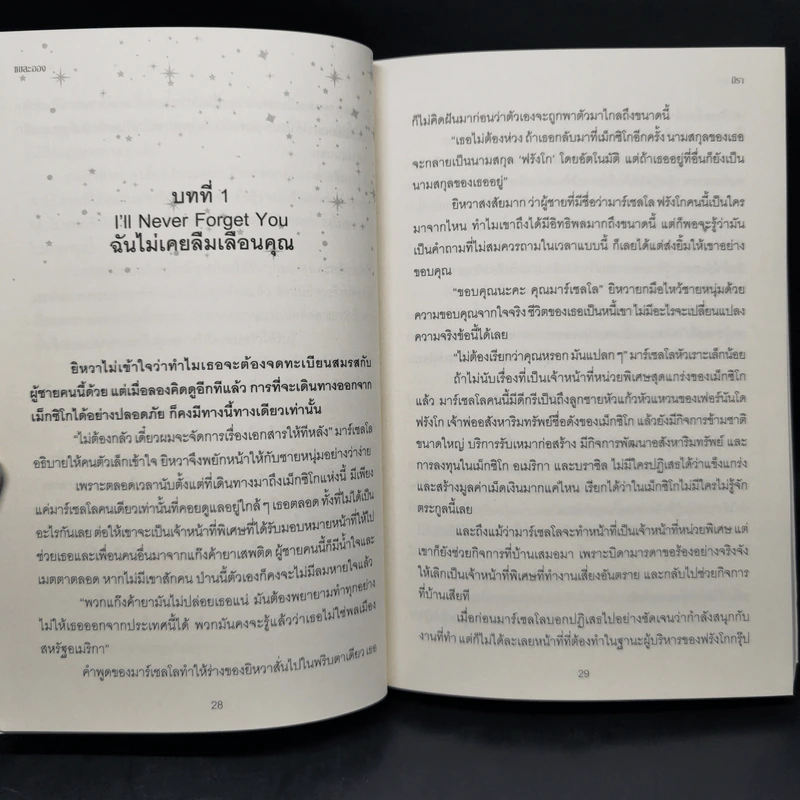 แขละออง
บทที่ 1
I'll Never Forget You
ฉันไม่เคยลืมเลือนคุณ
ยิหวาไม่เข้าใจว่าทำไมเธอจะต้องจดทะเบียนสมรสกับ
ผู้ชายคนนี้ด้วย แต่เมื่อลองคิดดูอีกทีแล้ว การที่จะเดินทางออกจาก
เม็กซิโกได้อย่างปลอดภัย ก็คงมีทางนี้ทางเดียวเท่านั้น
"ไม่ต้องกลัว เดี๋ยวผมจะจัดการเรื่องเอกสารให้ทีหลัง" มาร์เซลโล
อธิบายให้คนตัวเล็กเข้าใจ ยิหวาจึงพยักหน้าให้กับชายหนุ่มอย่างว่าง่าย
เพราะตลอดเวลานับตั้งแต่ที่เดินทางมาถึงเม็กซิโกแห่งนี้ มีเพียง
แค่มาร์เซลโลคนเดียวเท่านั้นที่คอยดูแลอยู่ใกล้ๆ เธอตลอด ทั้งที่ไม่ได้เป็น
อะไรกันเลย ต่อให้เขาจะเป็นเจ้าหน้าที่พิเศษที่ได้รับมอบหมายหน้าที่ให้ไป
ช่วยเธอและเพื่อนคนอื่นมาจากแก๊งค้ายาเสพติด ผู้ชายคนนี้ก็มีน้ำใจและ
เมตตาตลอด หากไม่มีเขาสักคน ป่านนี้ตัวเองก็คงจะไม่มีลมหายใจแล้ว
"พวกแก๊งค้ายามันไม่ปล่อยเธอแน่ มันต้องพยายามทำทุกอย่าง
ไม่ให้เธอออกจากประเทศนี้ได้ พวกมันคงจะรู้แล้วว่าเธอไม่ใช่พลเมือง
สหรัฐอเมริกา"
คำพูดของมาร์เซลโลทำให้ร่างของยิหวาสั่นไปในพริบตาเดียว เธอ
28
มิรา
ก็ไม่คิดฝันมาก่อนว่าตัวเองจะถูกพาตัวมาไกลถึงขนาดนี้
"เธอไม่ต้องห่วง ถ้าเธอกลับมาที่เม็กซิโกอีกครั้ง นามสกุลของเธอ
จะกลายเป็นนามสกุล 'ฟรังโก' โดยอัตโนมัติ แต่ถ้าเธออยู่ที่อื่นก็ยังเป็น
นามสกุลของเธออยู่"
ยิหวาสงสัยมาก ว่าผู้ชายที่มีชื่อว่ามาร์เซลโล ฟรังโกคนนี้เป็นใคร
มาจากไหน ทำไมเขาถึงได้มีอิทธิพลมากถึงขนาดนี้ แต่ก็พอจะรู้ว่ามัน
เป็นคำถามที่ไม่สมควรถามในเวลาแบบนี้ ก็เลยได้แต่ส่งยิ้มให้เขาอย่าง
ขอบคุณ
"ขอบคุณนะคะ คุณมาร์เซลโล" ยิหวายกมือไหว้ชายหนุ่มด้วย
ความขอบคุณจากใจจริง ชีวิตของเธอเป็นหนี้เขา ไม่มีอะไรจะเปลี่ยนแปลง
ความจริงข้อนี้ได้เลย
"ไม่ต้องเรียกว่าคุณหรอก มันแปลกๆ" มาร์เซลโลหัวเราะเล็กน้อย
ถ้าไม่นับเรื่องที่เป็นเจ้าหน้าที่หน่วยพิเศษสุดแกร่งของเม็กซิโก
แล้ว มาร์เซลโลคนนี้มีดีกรีเป็นถึงลูกชายหัวแก้วหัวแหวนของเฟอร์นันโด
ฟรังโก เจ้าพ่ออสังหาริมทรัพย์ชื่อดังของเม็กซิโก แล้วยังมีกิจการข้ามชาติ
ขนาดใหญ่ บริการรับเหมาก่อสร้าง มีกิจการพัฒนาอสังหาริมทรัพย์ และ
การลงทุนในเม็กซิโก อเมริกา และบราซิล ไม่มีใครปฏิเสธได้ว่าแข็งแกร่ง
และสร้างมูลค่าเม็ดเงินมากแค่ไหน เรียกได้ว่าในเม็กซิโกไม่มีใครไม่รู้จัก
ตระกูลนี้เลย
และถึงแม้ว่ามาร์เซลโลจะทำหน้าที่เป็นเจ้าหน้าที่หน่วยพิเศษ แต่
เขาก็ยังช่วยกิจการที่บ้านเสมอมา เพราะบิดามารดาขอร้องอย่างจริงจัง
ให้เลิกเป็นเจ้าหน้าที่พิเศษที่ทำงานเสี่ยงอันตราย และกลับไปช่วยกิจการ
ที่บ้านเสียที
เมื่อก่อนมาร์เซลโลบอกปฏิเสธไปอย่างชัดเจนว่ากำลังสนุกกับ
งานที่ทำ แต่ก็ไม่ได้ละเลยหน้าที่ที่ต้องทำในฐานะผู้บริหารของฟรังโกกรุ๊ป
29